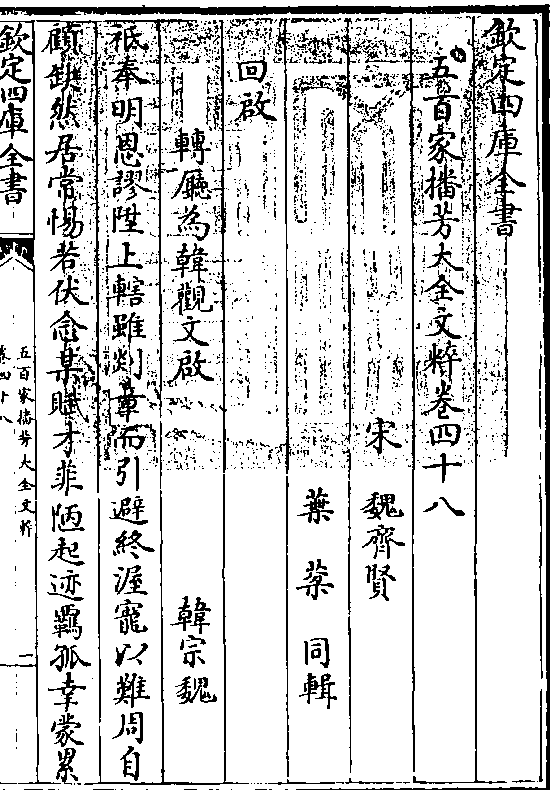 欽定四庫全書
五百家播芳大全文粹卷四十八
宋 魏齊賢
葉棻 同輯
回啟
轉廳為韓觀文啟 韓宗魏
祗奉明恩謬陞上轄雖剡章而引避終渥寵以難周自
顧缺然居常惕若伏念某賦才菲陋起迹羈孤幸蒙累
欽定四庫全書
五百家播芳大全文粹
卷四十八
一